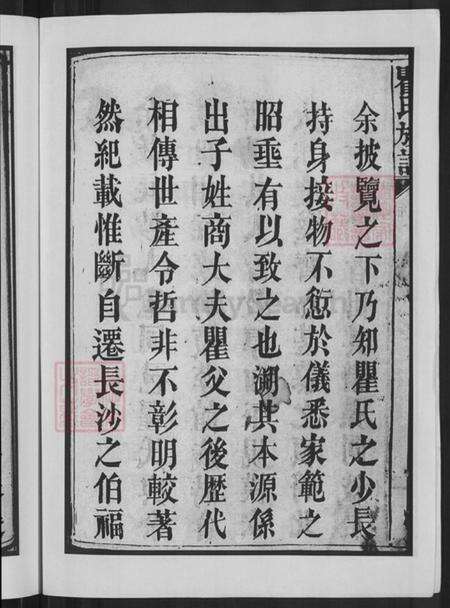 瞿氏族譜
余披覽之下乃知瞿氏之少長
持身接物不愆於儀悉家範之
昭垂有以致之也溯其本源係
出子姓商大夫瞿父之後歷代
相傳世產令哲非不彰明較著
然紀載惟斷自遷長沙之伯福